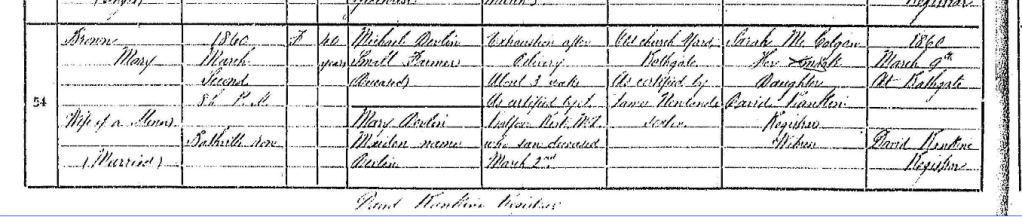 Registrar
54
Brown
Mary
Wife of a Miner
(Married)
1860
March
Second
8h P.M.
Bathville Row
F
40
years
Michael Devlin
Small Farmer
(Deceased)
Mary Devlin
Maiden name
Devlin
Exhaustion after
Delivery
About 3 weeks
As certified by
who saw deceased
March 2nd
Old church Yard
Bathgate
As certified by
James
Sexton
Sarah McColgan
Her mark
Daughter
David Rankine
Registrar
Witness
1860
March 9th
At Bathgate
David Rankine
Registrar
David Rankine Registrar